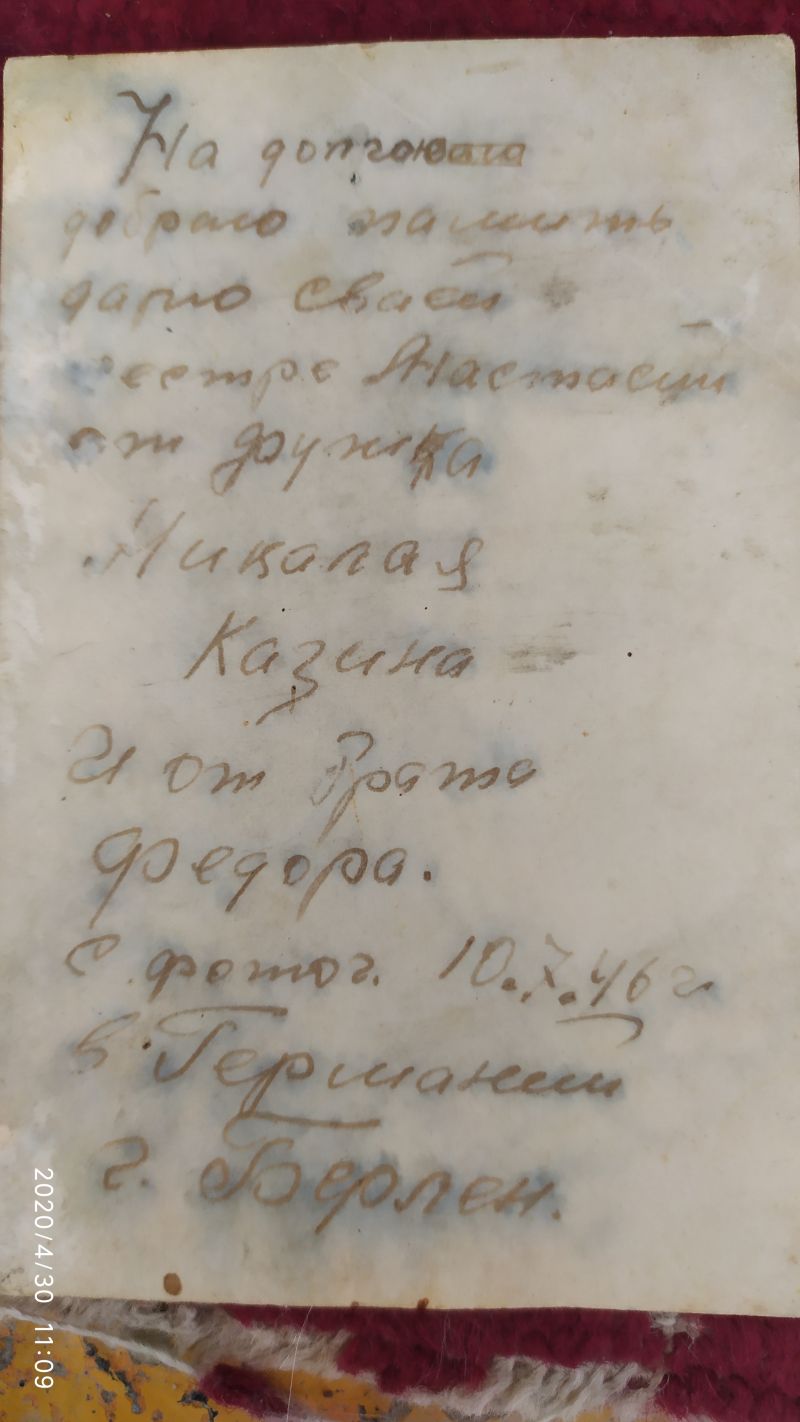 На долгою
доб­раю памить
дарю сваей
сестре Анастасий
от дружка
Никалая
Казина
И от брата
Федора.
с фотог. 10.7.46 г
в Германий
г. Берлен.
2020/4/30 11:09